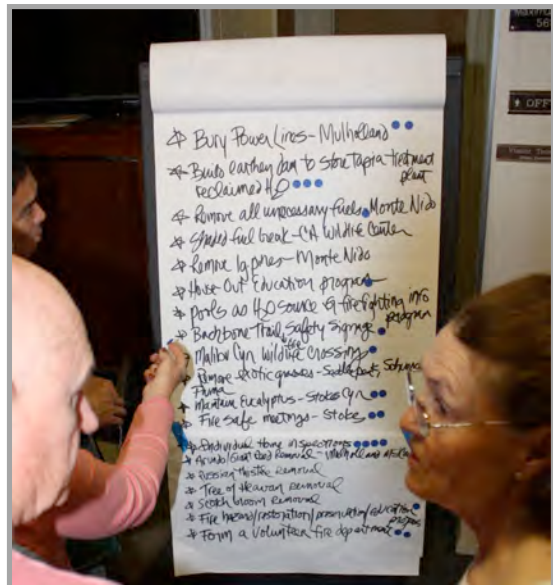 Maximum
56
OFF
Bury Power Lines - Mulholland
Build earthen dam to store Tapia treatment plant
reclaimed H2O
Remove all unecessary fuels Monte Nido
Shaded fuel break - CA Wildlife Center
Remove lg pines - Monte Nido
House Out Education program
Pools as H2O source & firefighting info program
Backbone Trail fire Safety Signage
Malibu Cyn Wildlife Crossing
Remove exotic grasses - Saddle peak,
Maintain Eucalyptus - Stokes Cyn
Fire safe meetings - Stokes
Individual Home inspections
Arundo/Giant Reed Removal - Mulholland
Russian thistle removal
Tree of Heaven removal
Scotch broom removal
Fire hazard/restoration/preservation/education progras
Form a volunteer fire department